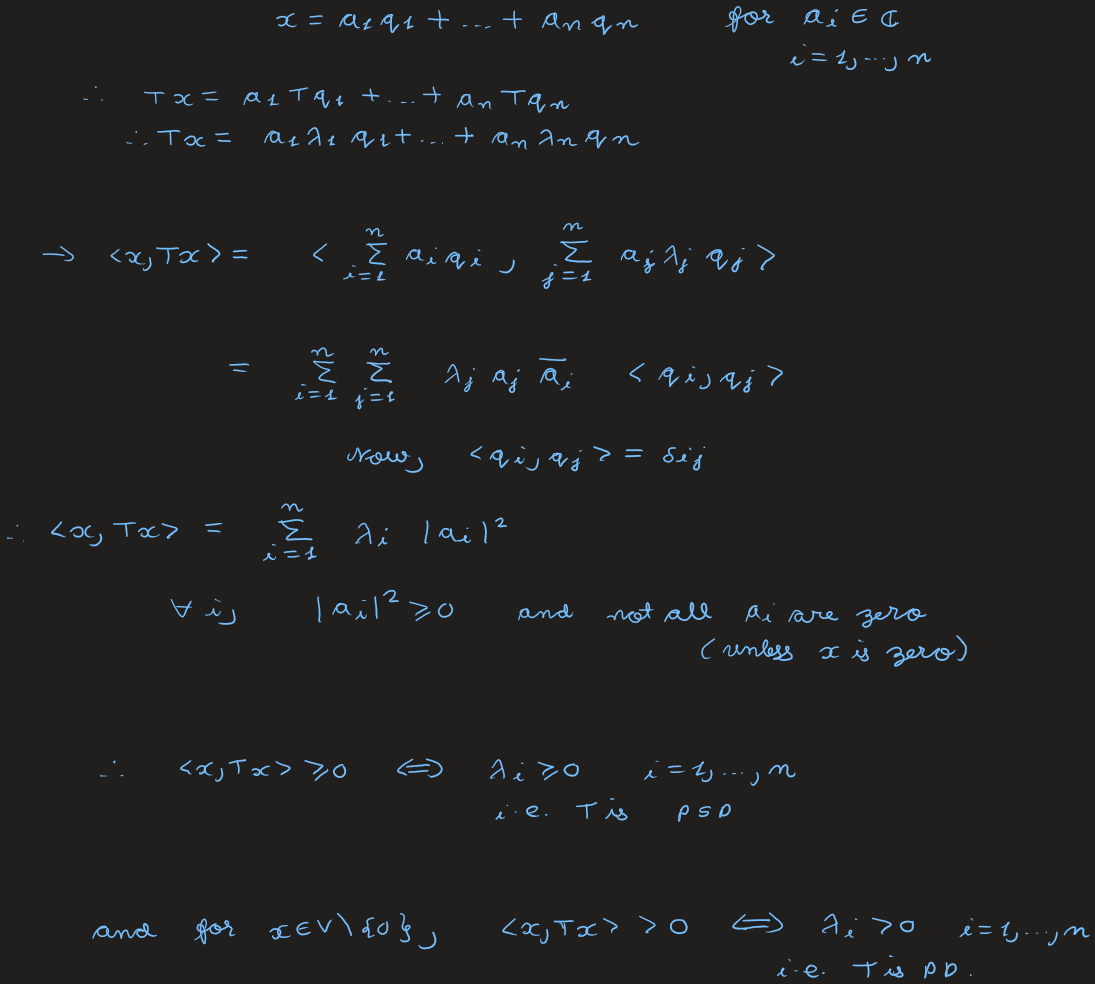 x = a₁q₁ + ... + aₙqₙ for aᵢ ∈ ℂ
i = 1, ..., n
∴ Tx = a₁Tq₁ + ... + aₙTqₙ
∴ Tx = a₁λ₁q₁ + ... + aₙλₙqₙ
→ <x, Tx> = < ∑ᵢ₌₁ⁿ aᵢqᵢ , ∑ⱼ₌₁ⁿ aⱼλⱼqⱼ >
= ∑ᵢ₌₁ⁿ ∑ⱼ₌₁ⁿ λⱼ aⱼ a̅ᵢ <qᵢ, qⱼ>
Now, <qᵢ, qⱼ> = δᵢⱼ
∴ <x, Tx> = ∑ᵢ₌₁ⁿ λᵢ |aᵢ|²
∀ i, |aᵢ|² ≥ 0 and not all aᵢ are zero
(unless x is zero)
∴ <x, Tx> ≥ 0 ⟺ λᵢ ≥ 0 i = 1, ..., n
i.e. T is PSD
and for x ∈ V \ {0}, <x, Tx> > 0 ⟺ λᵢ > 0 i = 1, ..., n
i.e. T is PD.